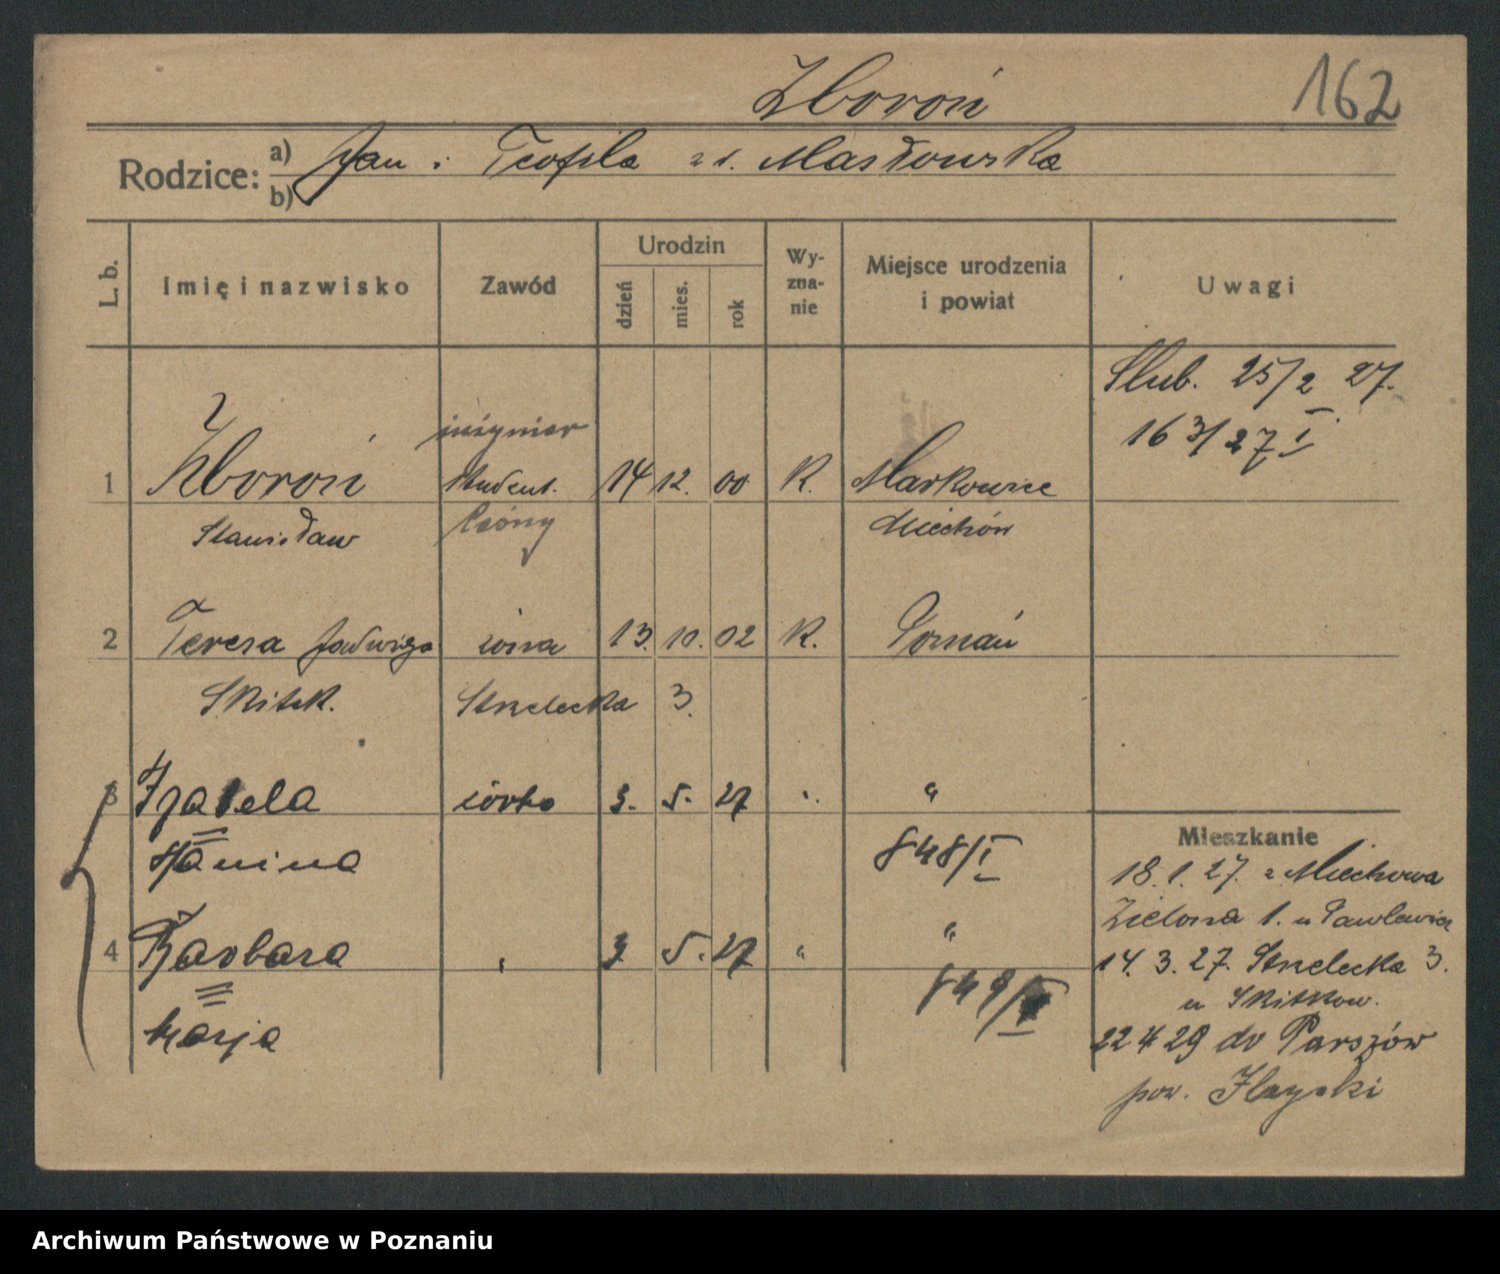 Zboroń
162
Rodzice: a) Jan i Teofila z d. Masłowska
b)
L. b.
Imię i nazwisko
Zawód
Urodzin
dzień
mies.
rok
Wy-
zna-
nie
Miejsce urodzenia
i powiat
Uwagi
Slub. 25/2 27.
163/27 I
inżynier
1 Zboroń student. 14 12. 00 K. Markowice
Stanisław leśny Miechów
2 Teresa Jadwiga żona 13. 10. 02 K. Poznań
Skitek. Strzelecka 3.
3 Izabela córka 3. 5. 27 " "
Janina 848/I
4 Barbara " 3 5. 27 " "
Marja 849/I
Mieszkanie
18. 1. 27. z Miechowa
Zielona 1. u Pawlewicz
14. 3. 27. Strzelecka 3.
u Skitkow.
22 4 29 do Parszów
pow. Iłżycki
Archiwum Państwowe w Poznaniu